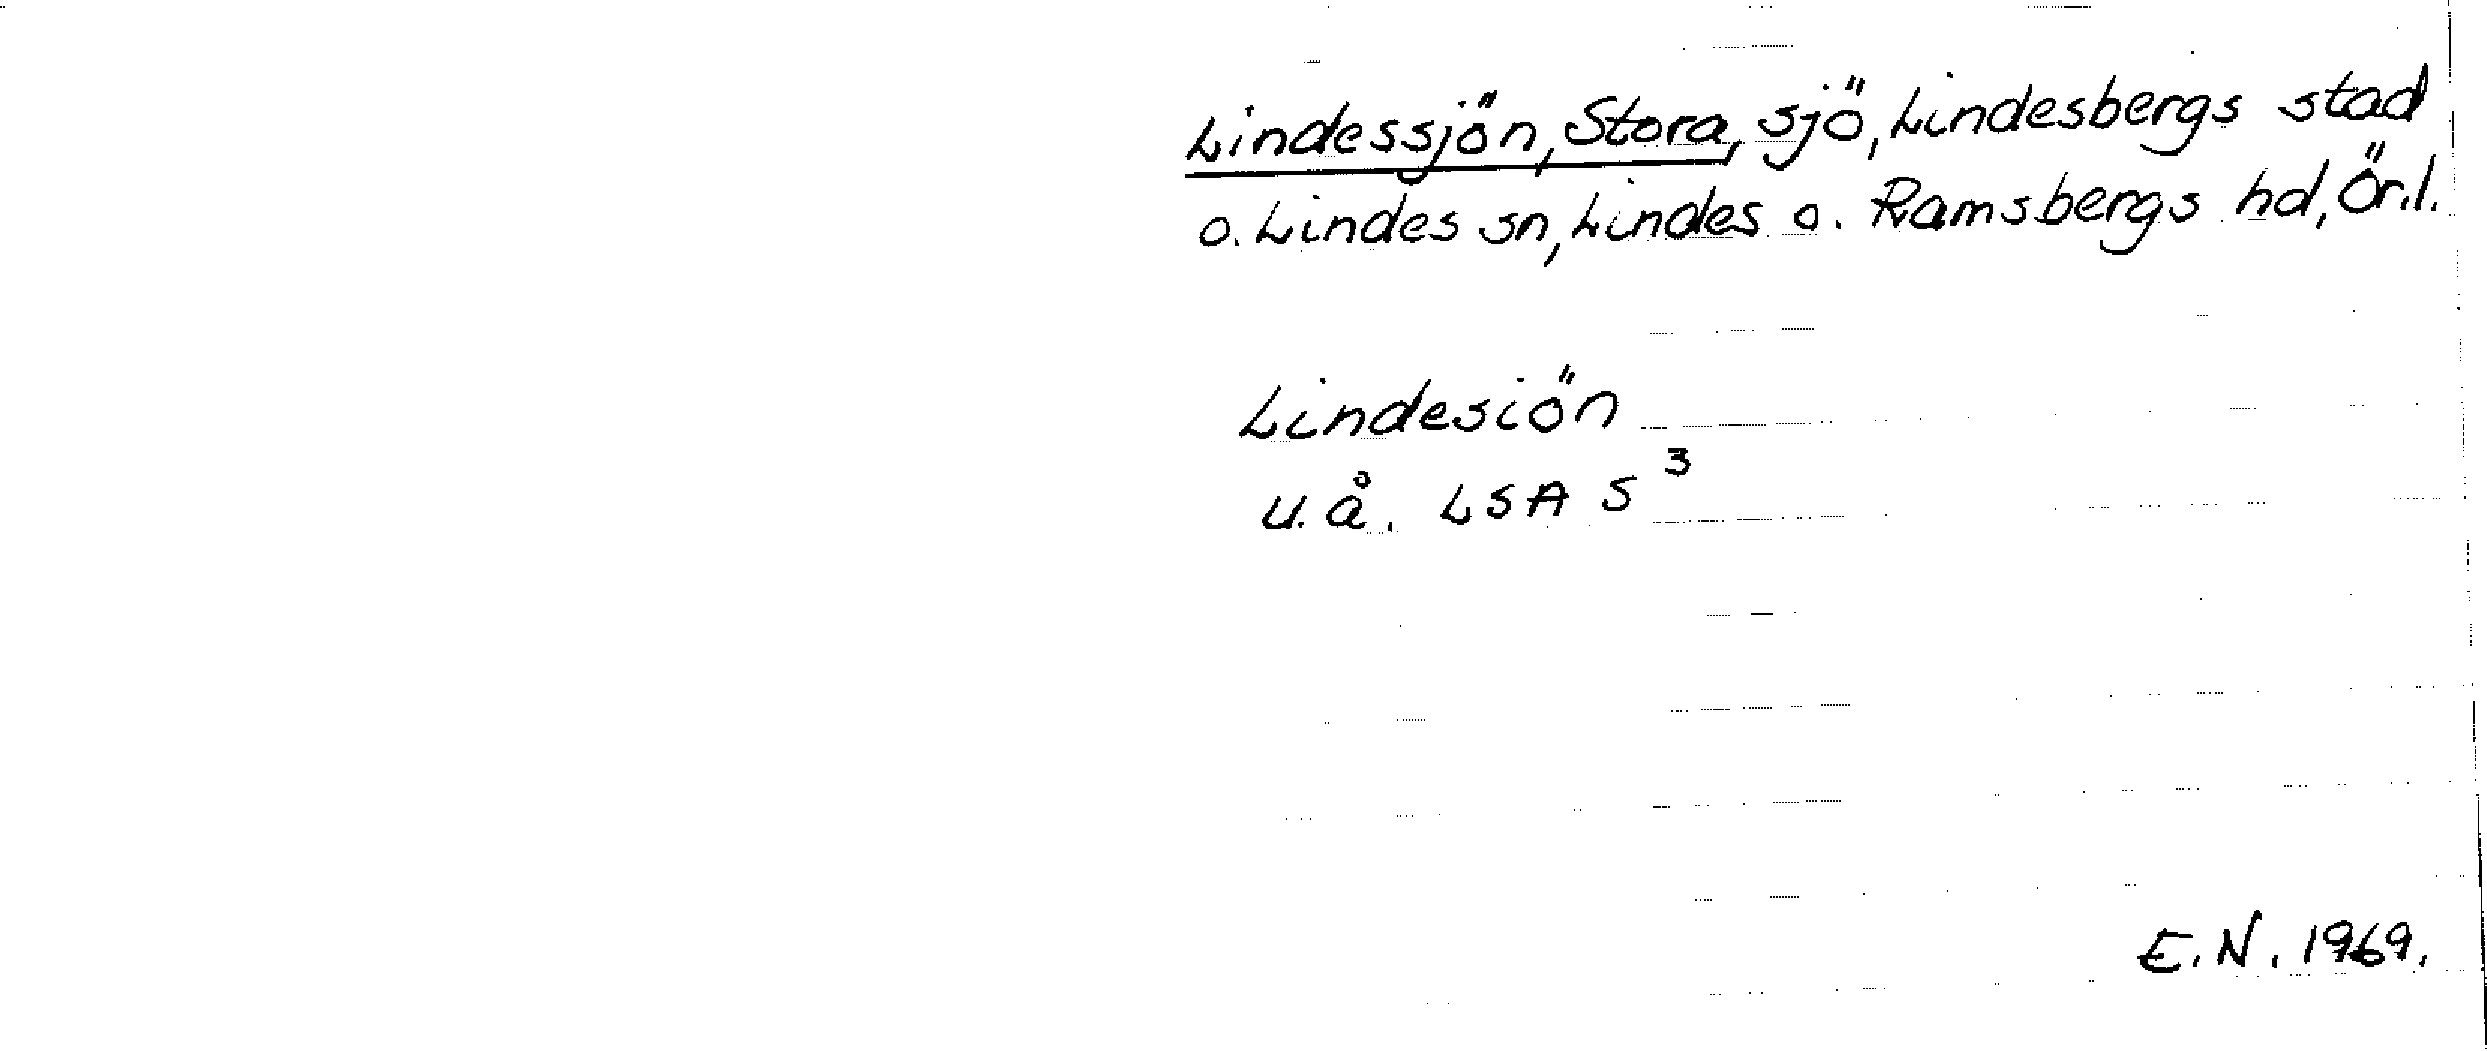 Lindessjön, Stora, sjö, Lindesbergs stad
o. Lindes sn, Lindes o. Ramsbergs hd, Ör.l.
Lindesiön
u.å. LSA S³
E.N. 1969.